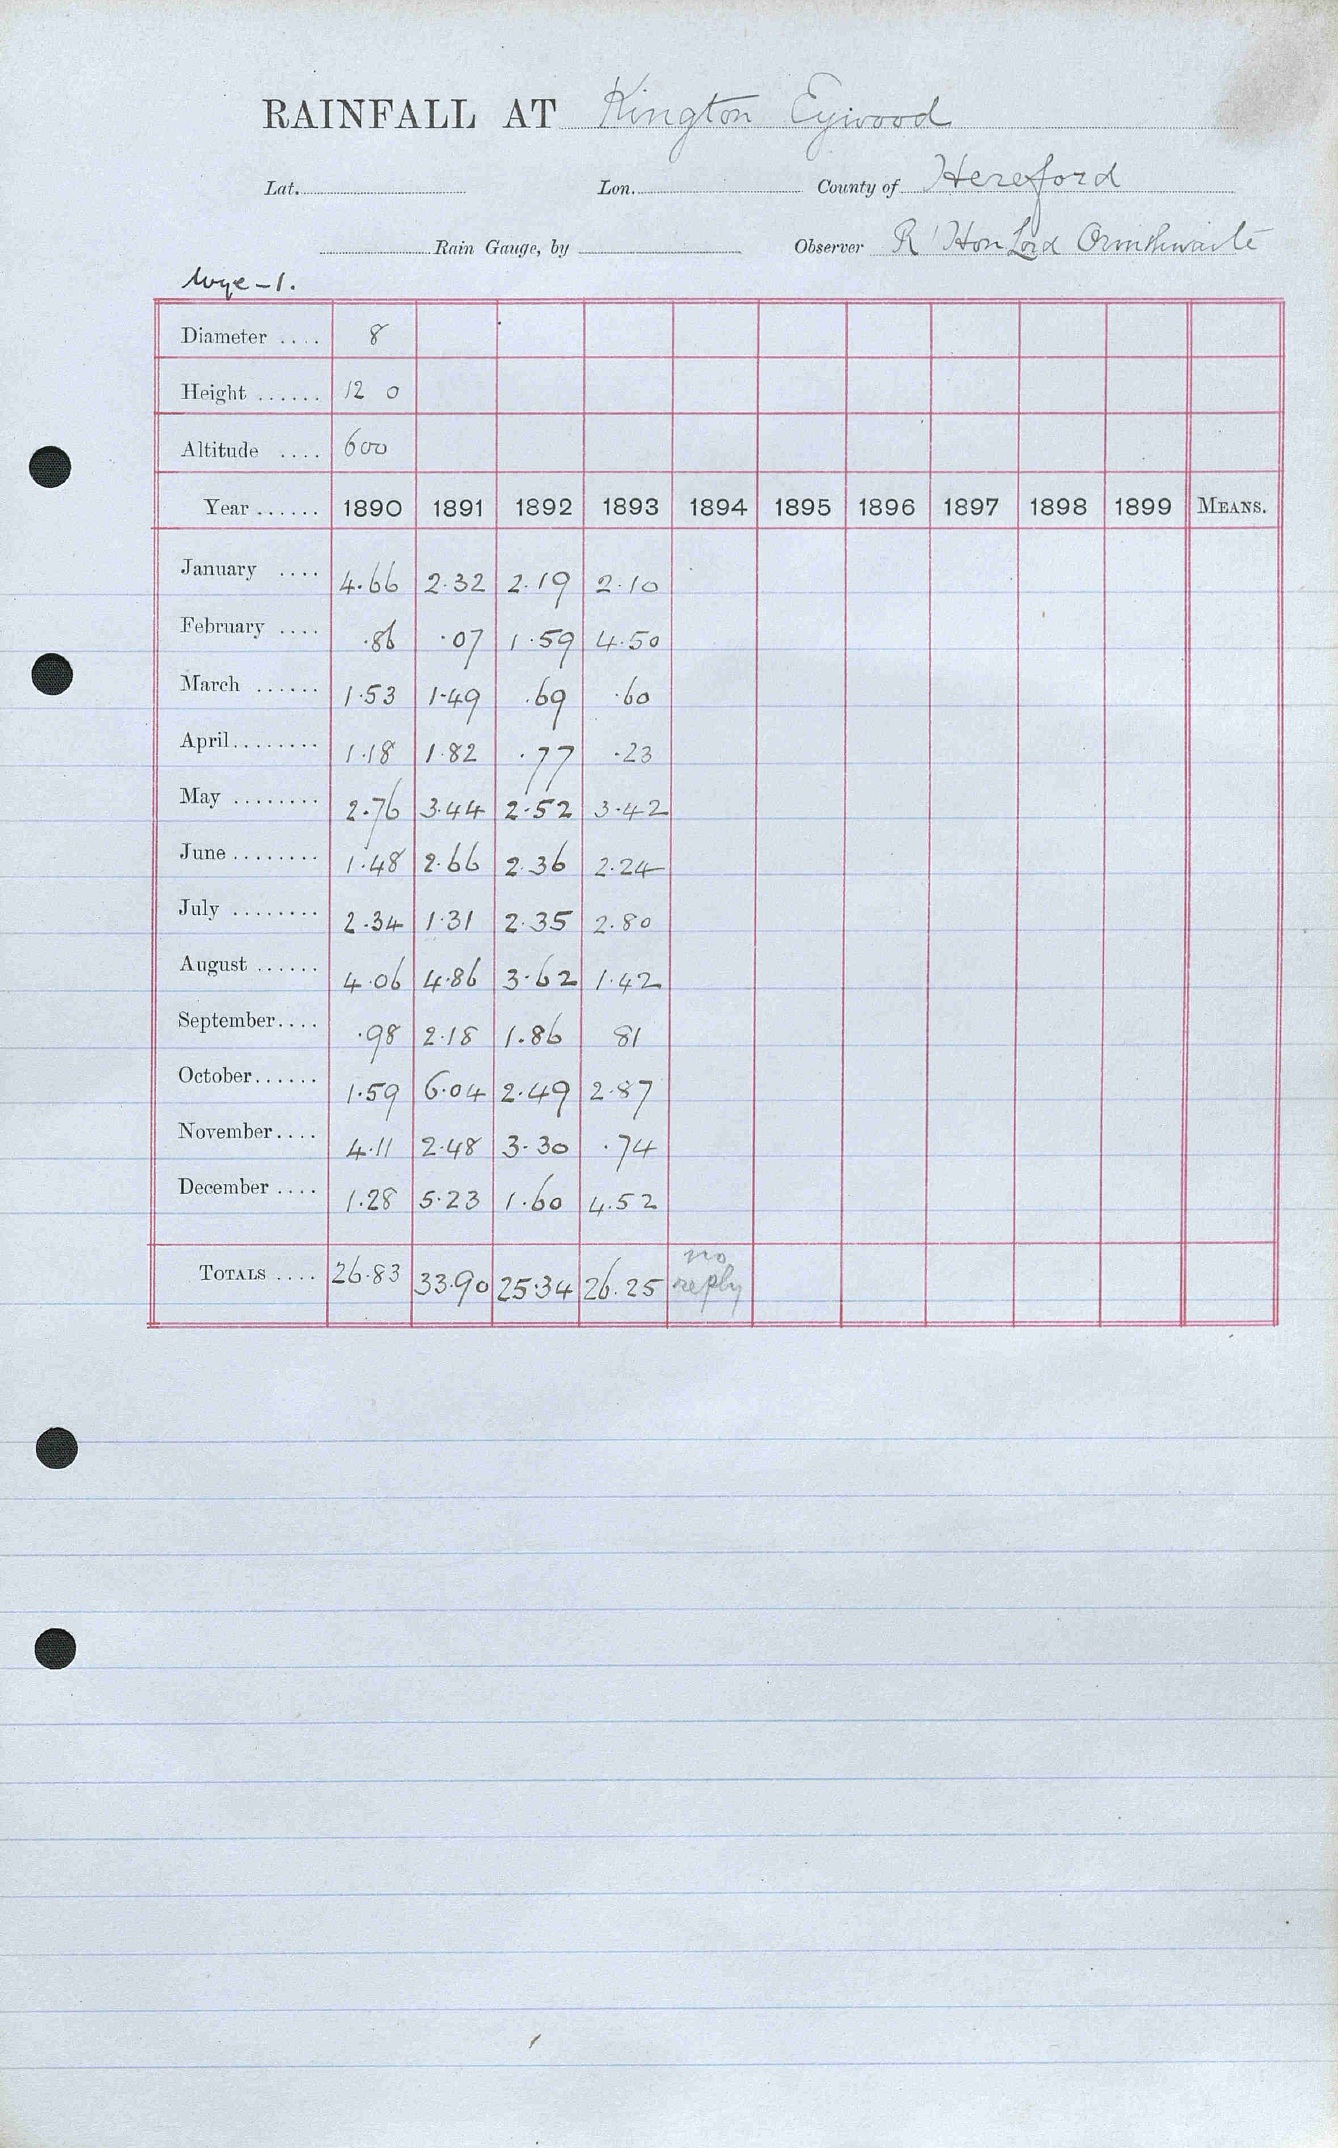 RAINFALL AT Kington Eywood
Lat. Lon. County of Hereford
Rain Gauge, by Observer Rt Hon Lord Ormathwaite
Wye - 1.
Diameter .... 8
Height ...... 12 0
Altitude .... 600
Year ...... 1890 1891 1892 1893 1894 1895 1896 1897 1898 1899 MEANS.
January .... 4.66 2.32 2.19 2.10
February .... .86 .07 1.59 4.50
March ...... 1.53 1.49 .69 .60
April........ 1.18 1.82 .77 .23
May ........ 2.76 3.44 2.52 3.42
June ........ 1.48 2.66 2.36 2.24
July ........ 2.34 1.31 2.35 2.80
August ...... 4.06 4.86 3.62 1.42
September.... .98 2.18 1.86 81
October...... 1.59 6.04 2.49 2.87
November.... 4.11 2.48 3.30 .74
December .... 1.28 5.23 1.60 4.52
TOTALS .... 26.83 33.90 25.34 26.25 no reply